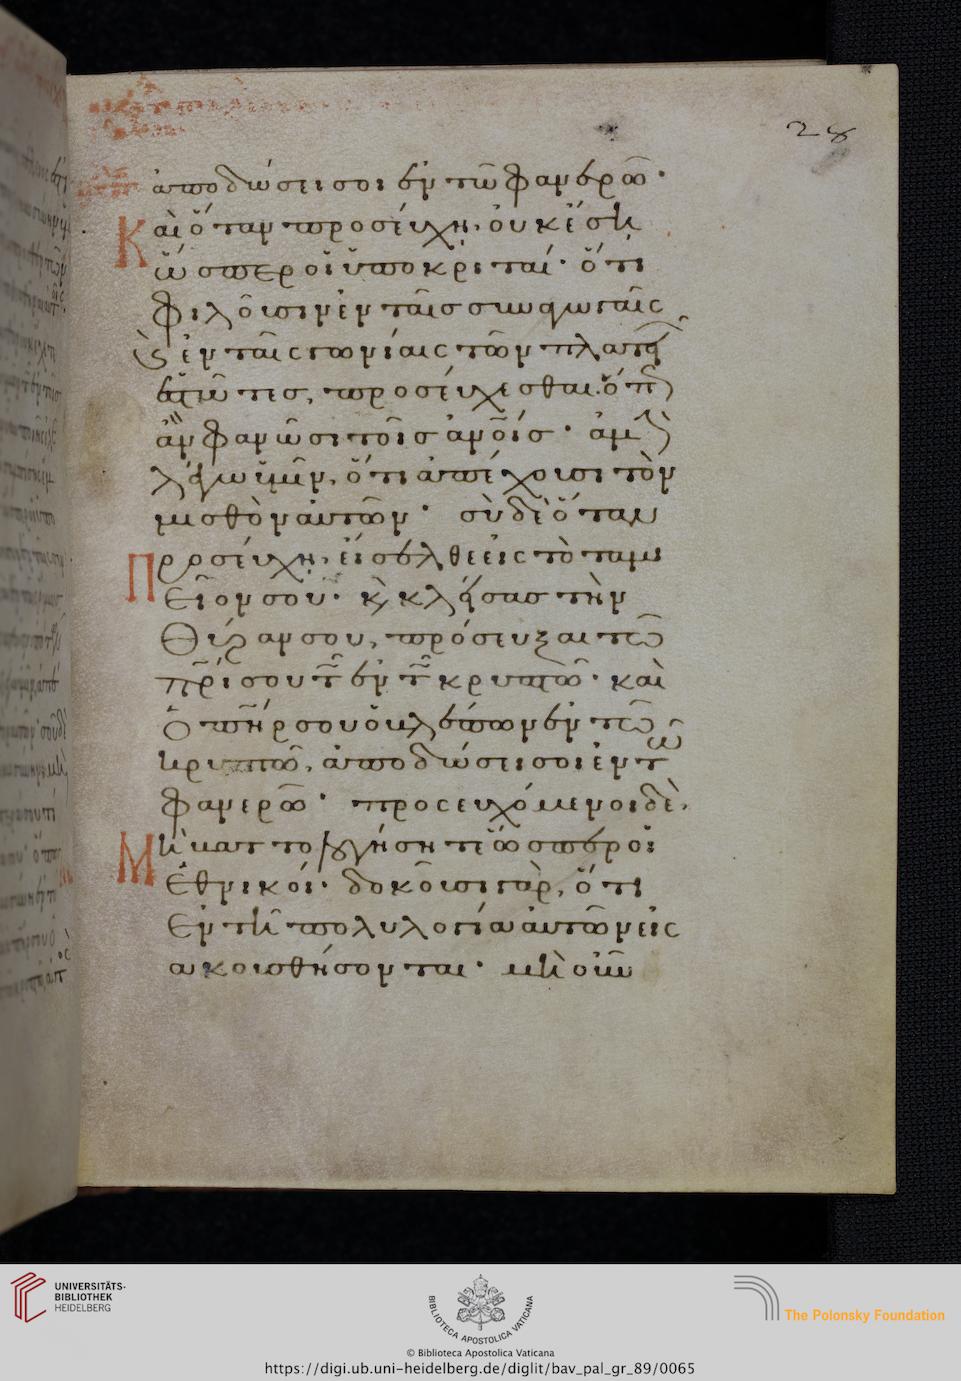 28
ἀποδώσει σοι ἐν τῶ φανερῶ·
Καὶ ὅταν προσέυχη, ὀυκ ἔση
ὥσπερ οἱ ὑποκριταί· ὅτι
φιλοῦσιν ἐν ταῖς συναγωγαῖς
ϗ ἐν ταῖς γωνίαις τῶν πλατ
ἑστῶτες, προσέυχεσθαι. ὅπ
ἂν φανῶσι τοῖς ἀνοίς· ἀμ
λέγω ὑμῖν, ὅτι ἀπέχουσι τὸν
μισθὸν αυτῶν· σὺ δὲ ὅταν
Προσέυχη, ἔισελθε εἰς τὸ ταμι
εῖον σου· ϗ κλείσας τὴν
θύραν σου, πρόσευξαι τῶ
πρί σου τ ἐν τ κρυπτῶ· καὶ
ὁ πηρ σου ὁ βλέπων ἐν τῶ
κρυπτῶ, ἀποδώσει σοι ἐν τῶ
φανερῶ· προσευχόμενοι δὲ,
Μὴ βαττολογήσητε ὥσπερ οἱ
ἐθνικόι· δοκοῦσι γὰρ, ὅτι
ἐν τῆ πολυλογία αυτῶν εἰς
ακουσθήσονται· μὴ οὖν
UNIVERSITÄTS-
BIBLIOTHEK
HEIDELBERG
BIBLIOTECA APOSTOLICA VATICANA
The Polonsky Foundation
© Biblioteca Apostolica Vaticana
https://digi.ub.uni-heidelberg.de/diglit/bav_pal_gr_89/0065